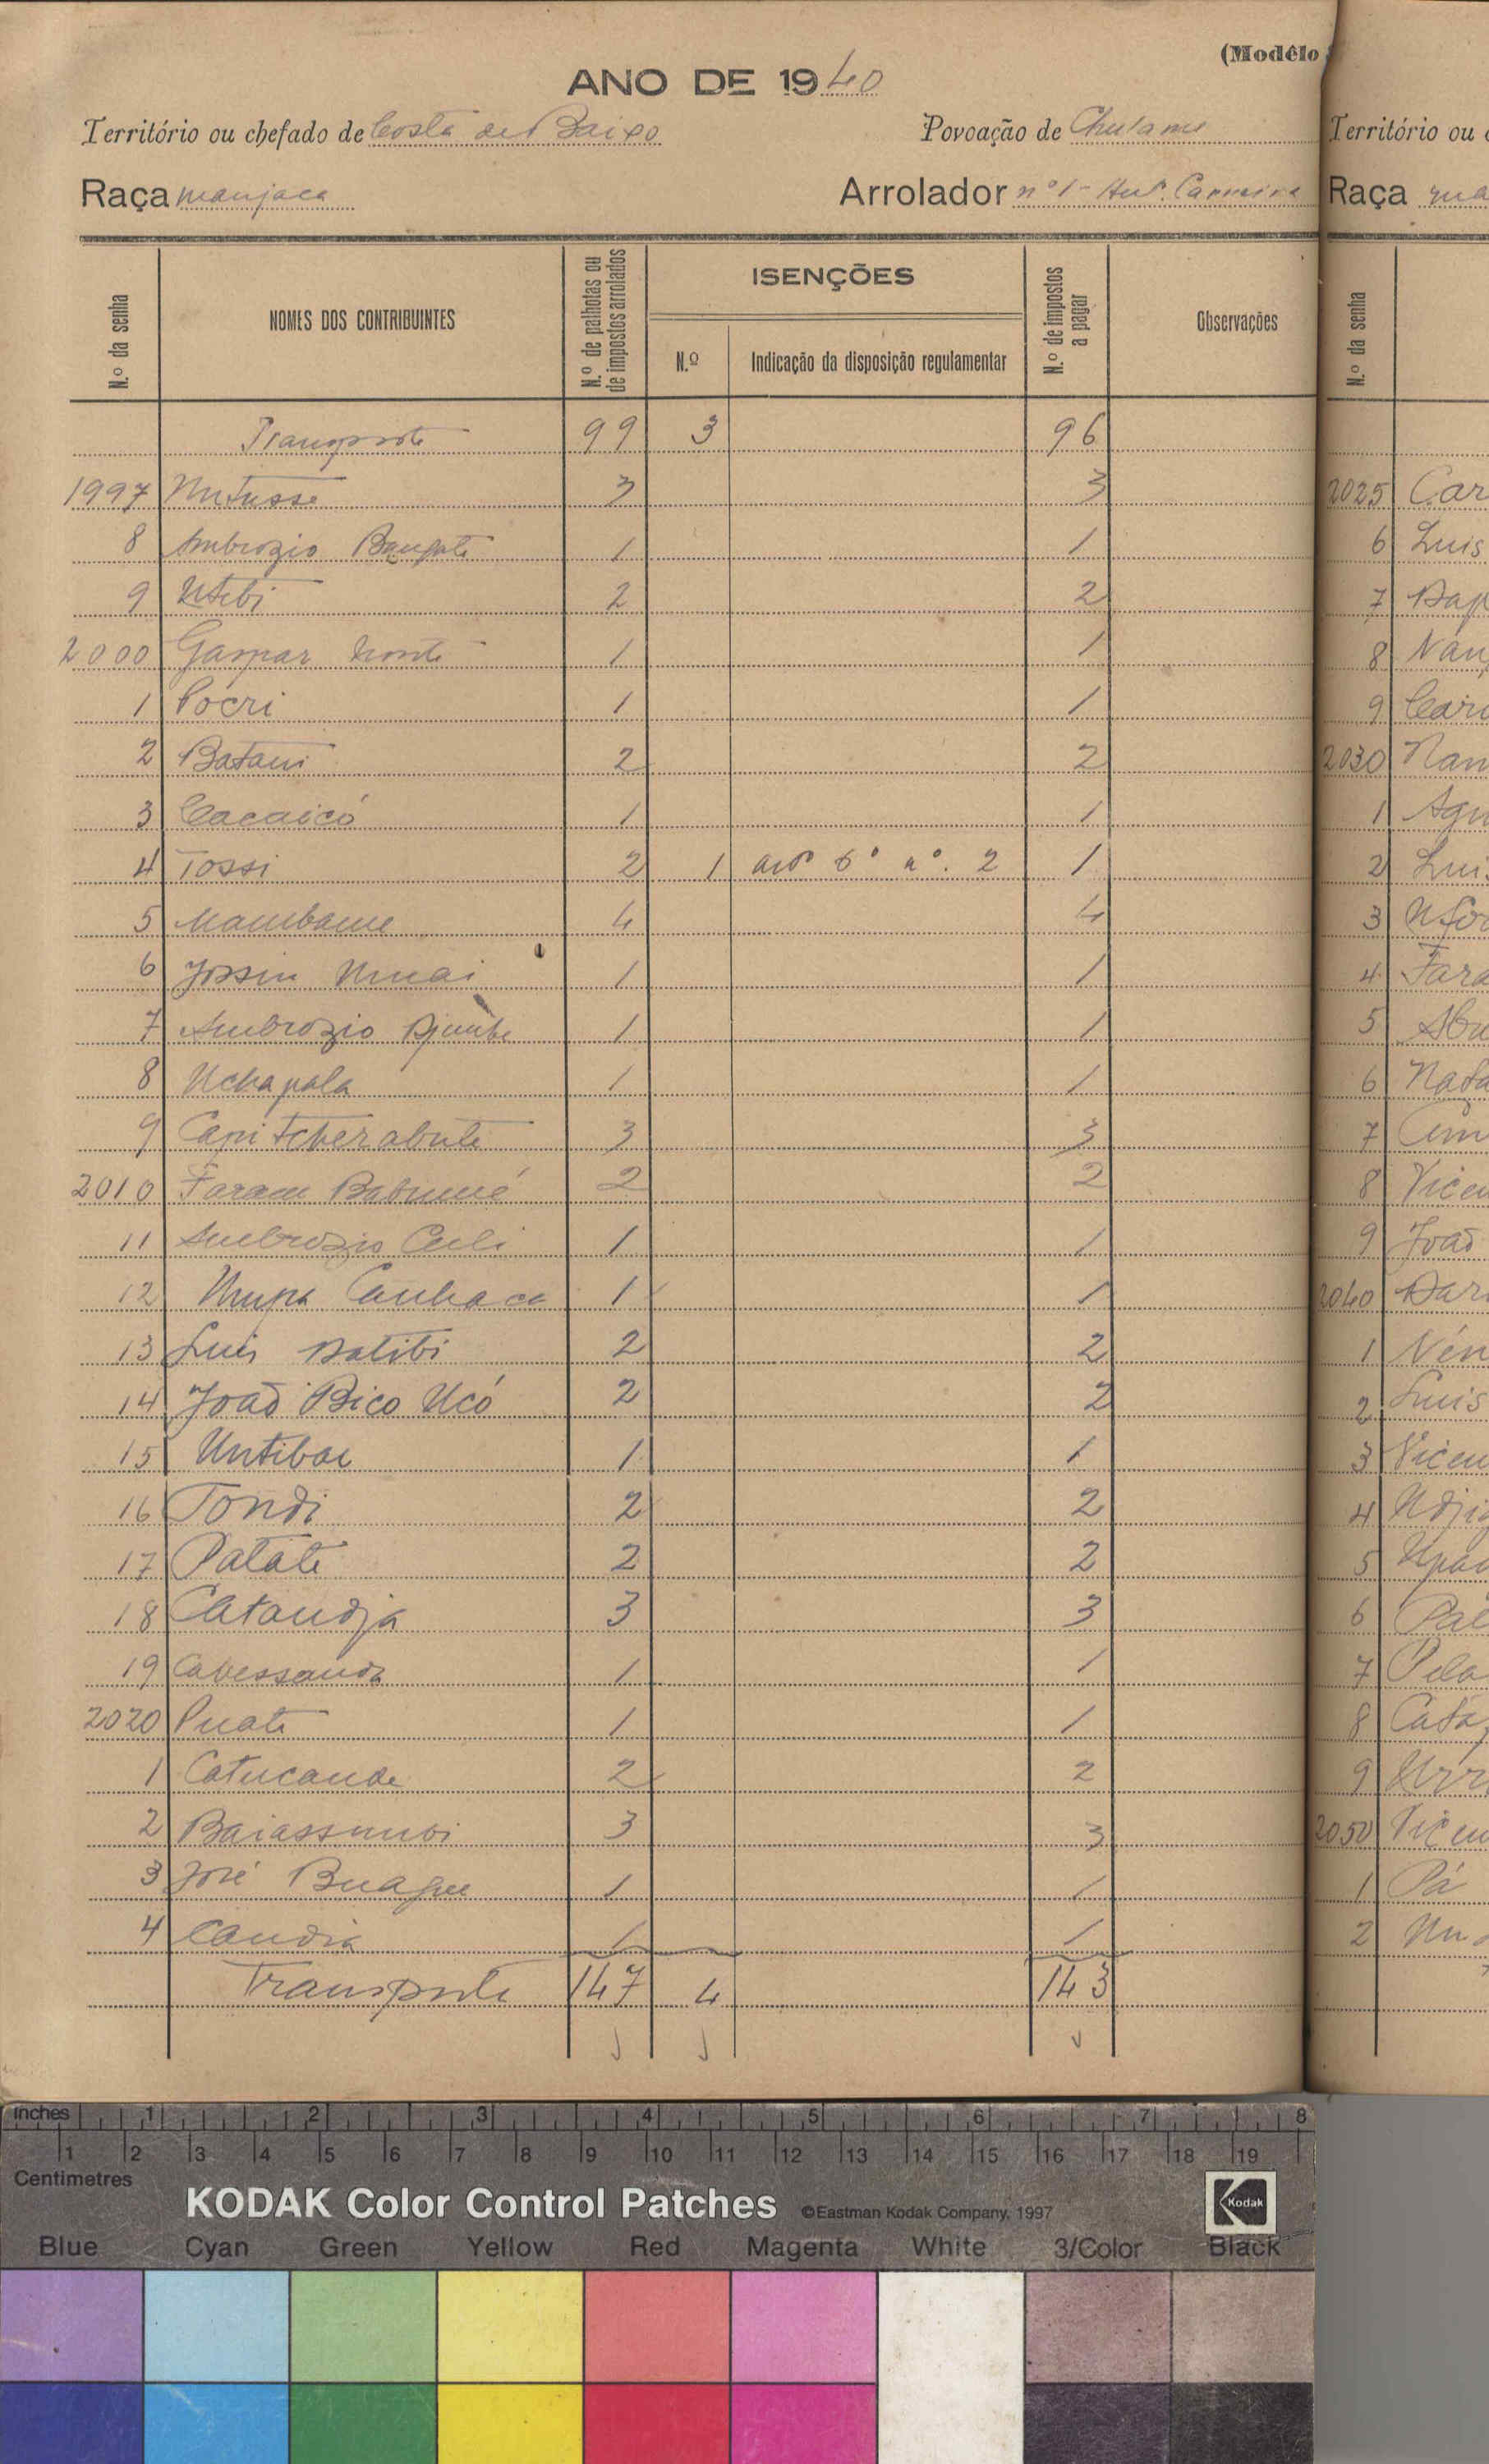 (Modêlo
ANO DE 1940
Território ou chefado de Costa de Baixo
Povoação de Chulame
Raça manjaca
Arrolador nº 1 - Antº. Carreira
N.º da senha
NOMES DOS CONTRIBUINTES
N.º de palhotas ou de impostos arrolados
ISENÇÕES
N.º
Indicação da disposição regulamentar
N.º de impostos a pagar
Observações
Transporte 99 3 96
1997 3 3
8 Ambrozio 1 1
9 2 2
2000 Gaspar 1 1
1 Pocri 1 1
2 Batani 2 2
3 Cacaicó 1 1
4 Tossi 2 1 artº 6º nº. 2 1
5 Mambame 4 4
6 1 1
7 Ambrozio Djumbe 1 1
8 Uchapala 1 1
9 Capi Tcherabute 3 3
2010 Faram 2 2
11 Ambrozio 1 1
12 1 1
13 Luis Datibi 2 2
14 João Bico Ucó 2 2
15 Untibae 1 1
16 Tondi 2 2
17 Patate 2 2
18 Catandja 3 3
19 Cabessanda 1 1
2020 Puate 1 1
1 Catucande 2 2
2 3 3
3 José 1 1
4 Candia 1 1
Transporte 147 4 143
Território ou
Raça ma
N.º da senha
2025 Car
6 Luis
7 Dap
8 Nan
9 Cari
2030 Nam
1 Agu
2 Lui
3
4 Fara
5
6 Nata
7
8 Vicen
9 João
2040 Dar
1 Nén
2 Luis
3 Vicen
4 Udji
5 Upa
6 Pal
7 Pela
8 Cata
9
2050 Vicen
1 Pá
2 Un
inches 1 2 3 4 5 6 7 8
1 2 3 4 5 6 7 8 9 10 11 12 13 14 15 16 17 18 19
Centimetres
KODAK Color Control Patches ©Eastman Kodak Company, 1997
Kodak
Blue Cyan Green Yellow Red Magenta White 3/Color Black